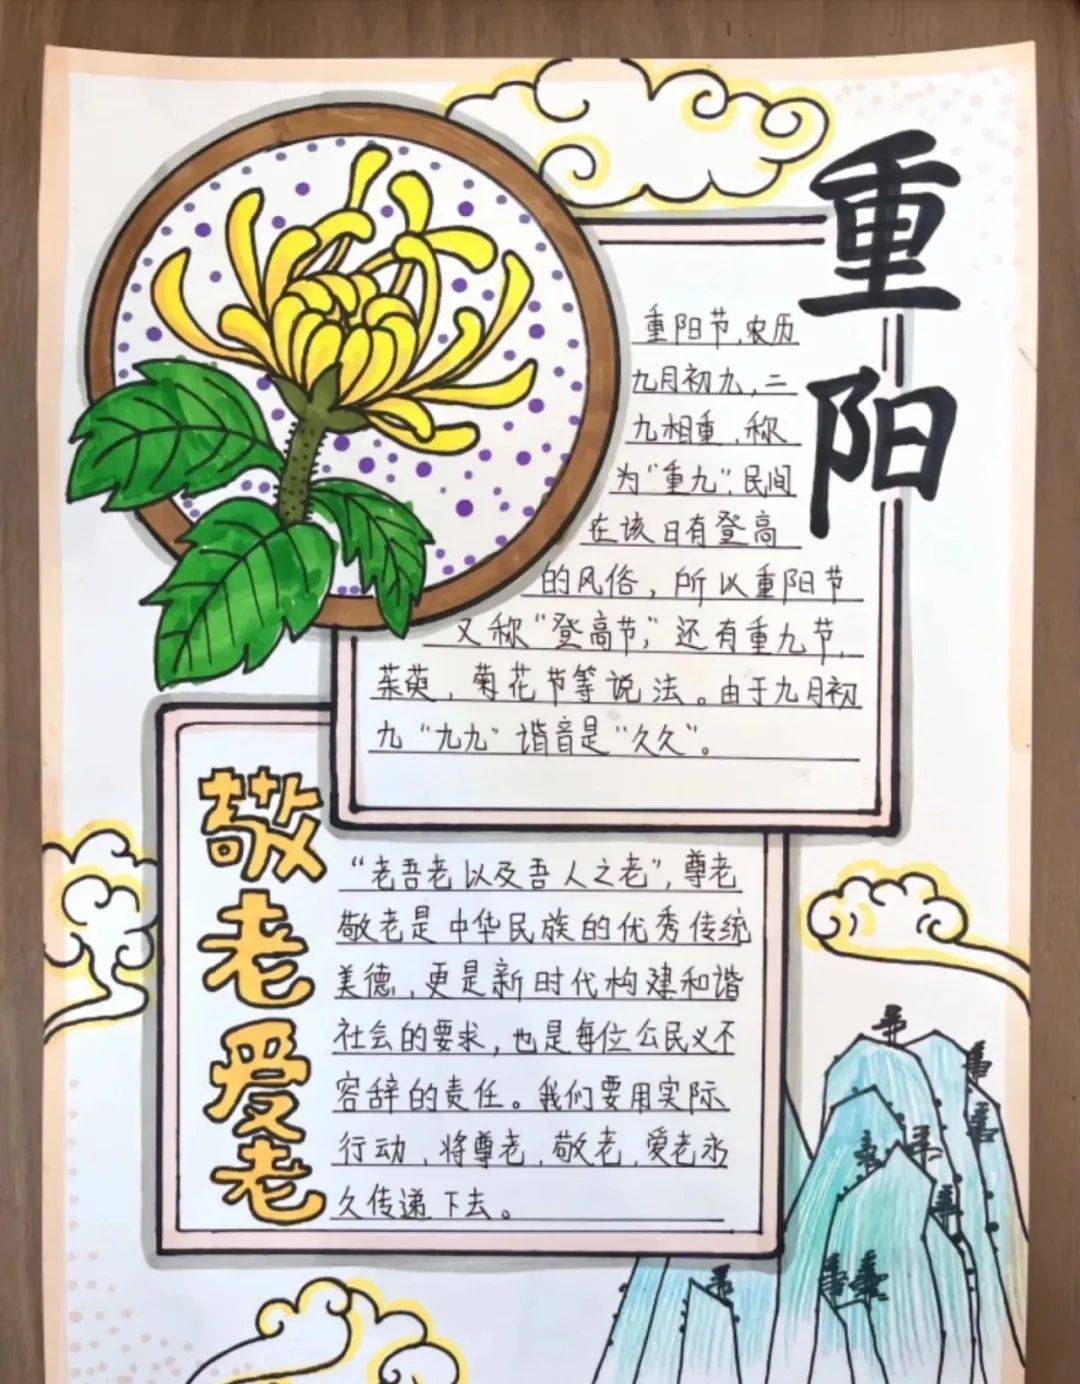 重阳
重阳节,农历
九月初九,二
九相重,称
为“重九”,民间
在该日有登高
的风俗,所以重阳节
又称“登高节,”还有重九节,
茱萸,菊花节等说法。由于九月初
九“九九”谐音是“久久”。
敬老爱老
“老吾老以及吾人之老”,尊老
敬老是中华民族的优秀传统
美德,更是新时代构建和谐
社会的要求,也是每位公民义不
容辞的责任。我们要用实际
行动,将尊老,敬老,爱老永
久传递下去。